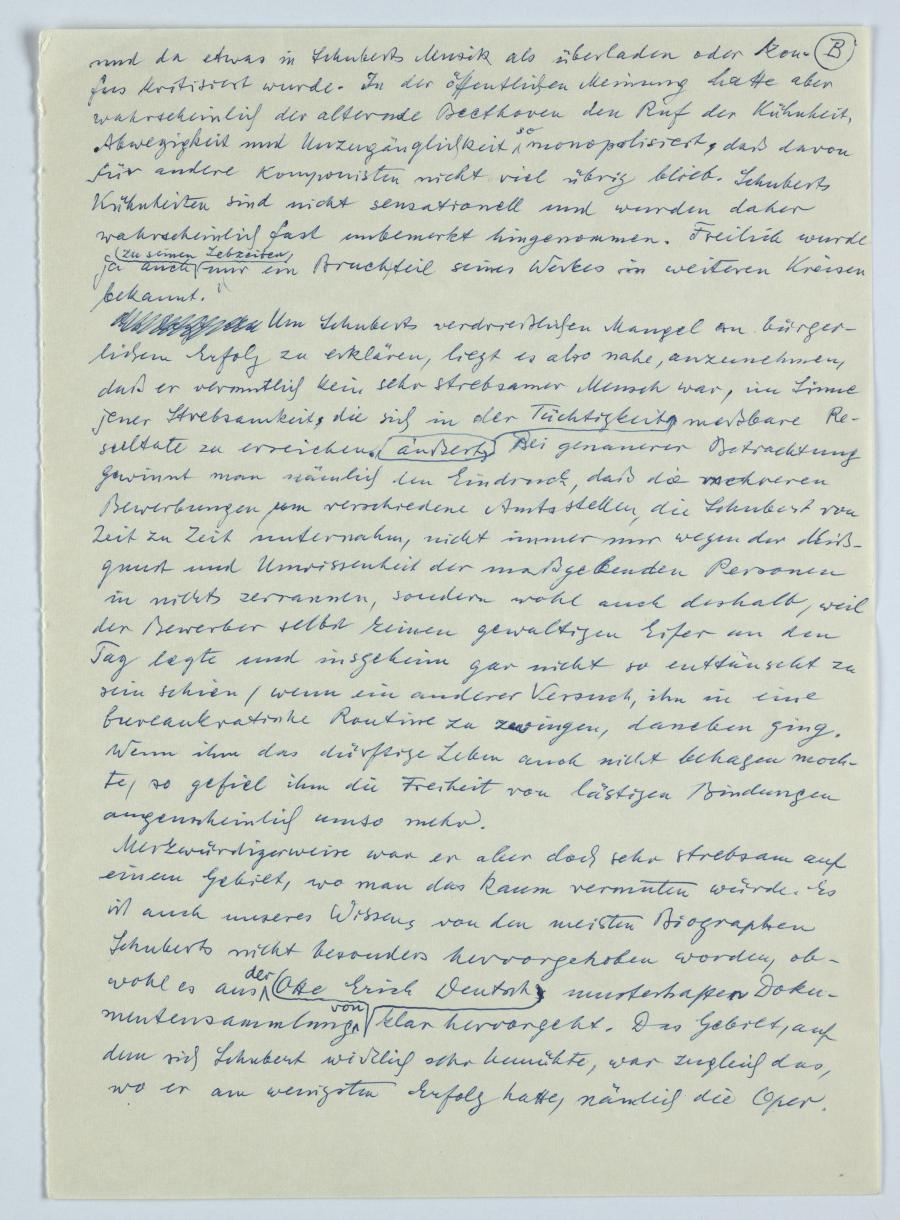 und da etwas in Schuberts Musik als überladen oder kon- (B)
fus kritisiert wurde. In der öffentlichen Meinung hatte aber
wahrscheinlich der alternde Beethoven den Ruf der Kühnheit,
Abwegigkeit und Unzugänglichkeit so monopolisiert, daß davon
für andere Komponisten nicht viel übrig blieb. Schuberts
Kühnheiten sind nicht sensationell und wurden daher
wahrscheinlich fast unbemerkt hingenommen. Freilich wurde
(zu seinen Lebzeiten)
ja auch nur ein Bruchteil seines Werkes in weiteren Kreisen
bekannt.
Um Schuberts verdrießlichen Mangel an bürger-
lichem Erfolg zu erklären, liegt es also nahe, anzunehmen,
daß er vermutlich kein sehr strebsamer Mensch war, im Sinne
jener Strebsamkeit, die sich in der Tüchtigkeit, meßbare Re-
sultate zu erreichen, äußert. Bei genauerer Betrachtung
gewinnt man nämlich den Eindruck, daß die mehreren
Bewerbungen um verschiedene Amtsstellen, die Schubert von
Zeit zu Zeit unternahm, nicht immer nur wegen der Miß-
gunst und Unwissenheit der maßgebenden Personen
in nichts zerrannen, sondern wohl auch deshalb, weil
der Bewerber selbst keinen gewaltigen Eifer an den
Tag legte und insgeheim gar nicht so enttäuscht zu
sein schien, wenn ein anderer Versuch, ihn in eine
bureaukratische Routine zu zwingen, daneben ging.
Wenn ihm das dürftige Leben auch nicht behagen moch-
te, so gefiel ihm die Freiheit von lästigen Bindungen
augenscheinlich umso mehr.
Merkwürdigerweise war er aber doch sehr strebsam auf
einem Gebiet, wo man das kaum vermuten würde. Es
ist auch unseres Wissens von den meisten Biographen
Schuberts nicht besonders hervorgehoben worden, ob-
wohl es aus der Otto Erich Deutsch musterhaften Doku-
mentensammlung von klar hervorgeht. Das Gebiet, auf
dem sich Schubert wirklich sehr bemühte, war zugleich das,
wo er am wenigsten Erfolg hatte, nämlich die Oper.